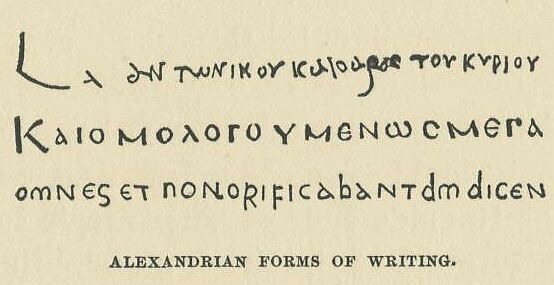 L α αντωνικου καισαρος του κυριου
ΚΑΙΟΜΟΛΟΓΟΥΜΕΝωϹΜΕΓΑ
omnes et nonorificabant dm dicen
ALEXANDRIAN FORMS OF WRITING.